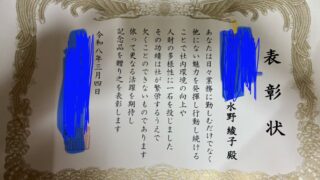 表彰状
水野 綾子 殿
あなたは日々業務に勤しむだけでなく
他にない魅力を発揮し行動し続ける
ことで社内環境の向上や
人財の多様性に一石を投じました
その功績は社が繁栄するうえで
欠くことのできないものであります
依って更なる活躍を期待し
記念品を贈り之を表彰します
令和八年三月四日